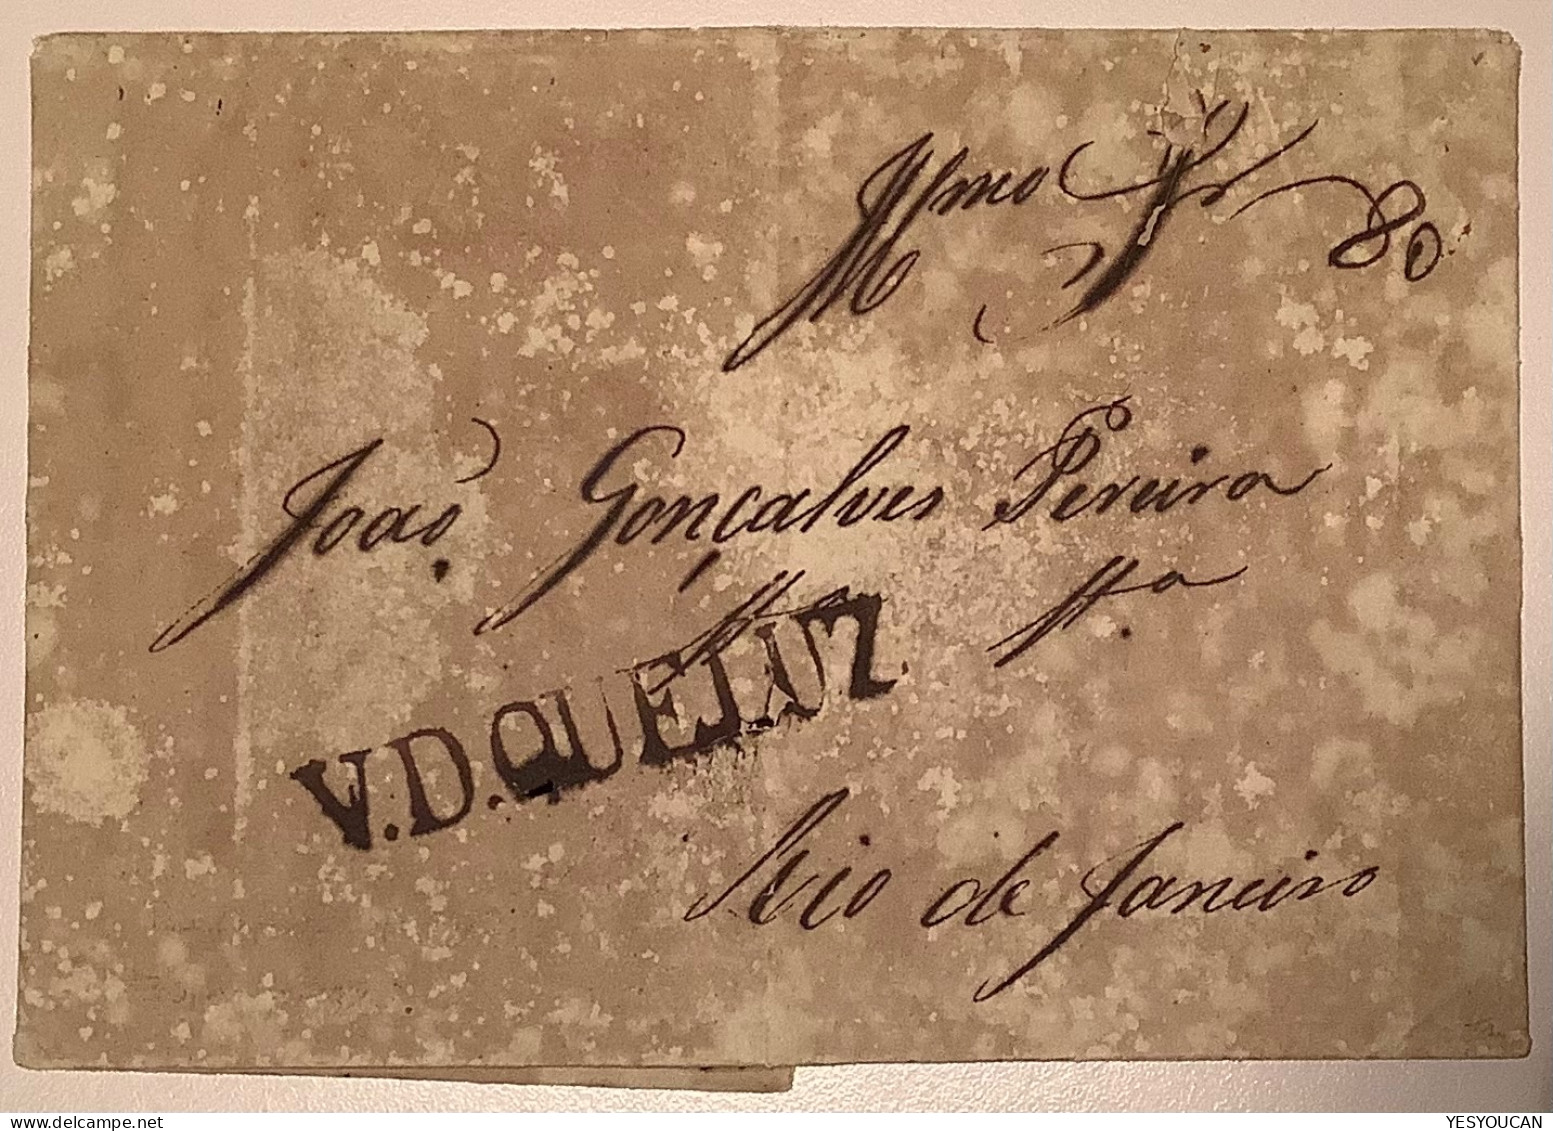 Illmo Sr 80
João Gonçalves Pereira
V.D.QUELUZ.
Rio de Janeiro
YESYOUCAN